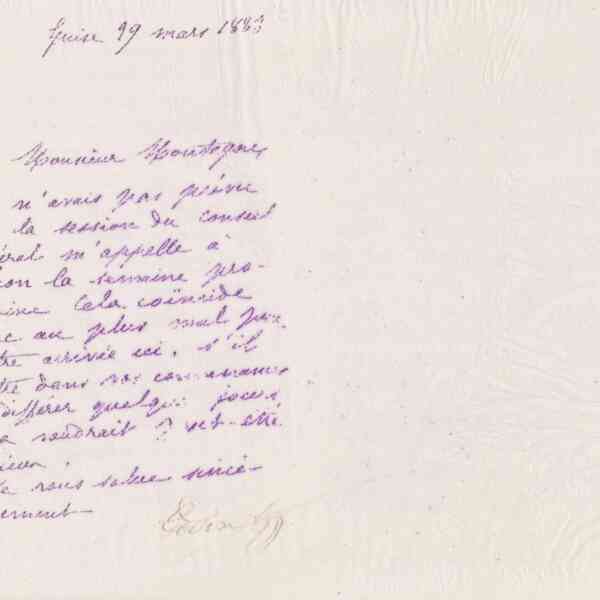 Guise 29 mars 1883
Monsieur Montagne,
n'avais pas prévu
la session du conseil
éral m'appelle à
on la semaine pro-
aine Cela coïncide
c au plus mal
tre arrivée ici. S'il
dans vos convenances
différer quelques jours
voudrait peut-être
ieux.
e vous salue sincè-
ement